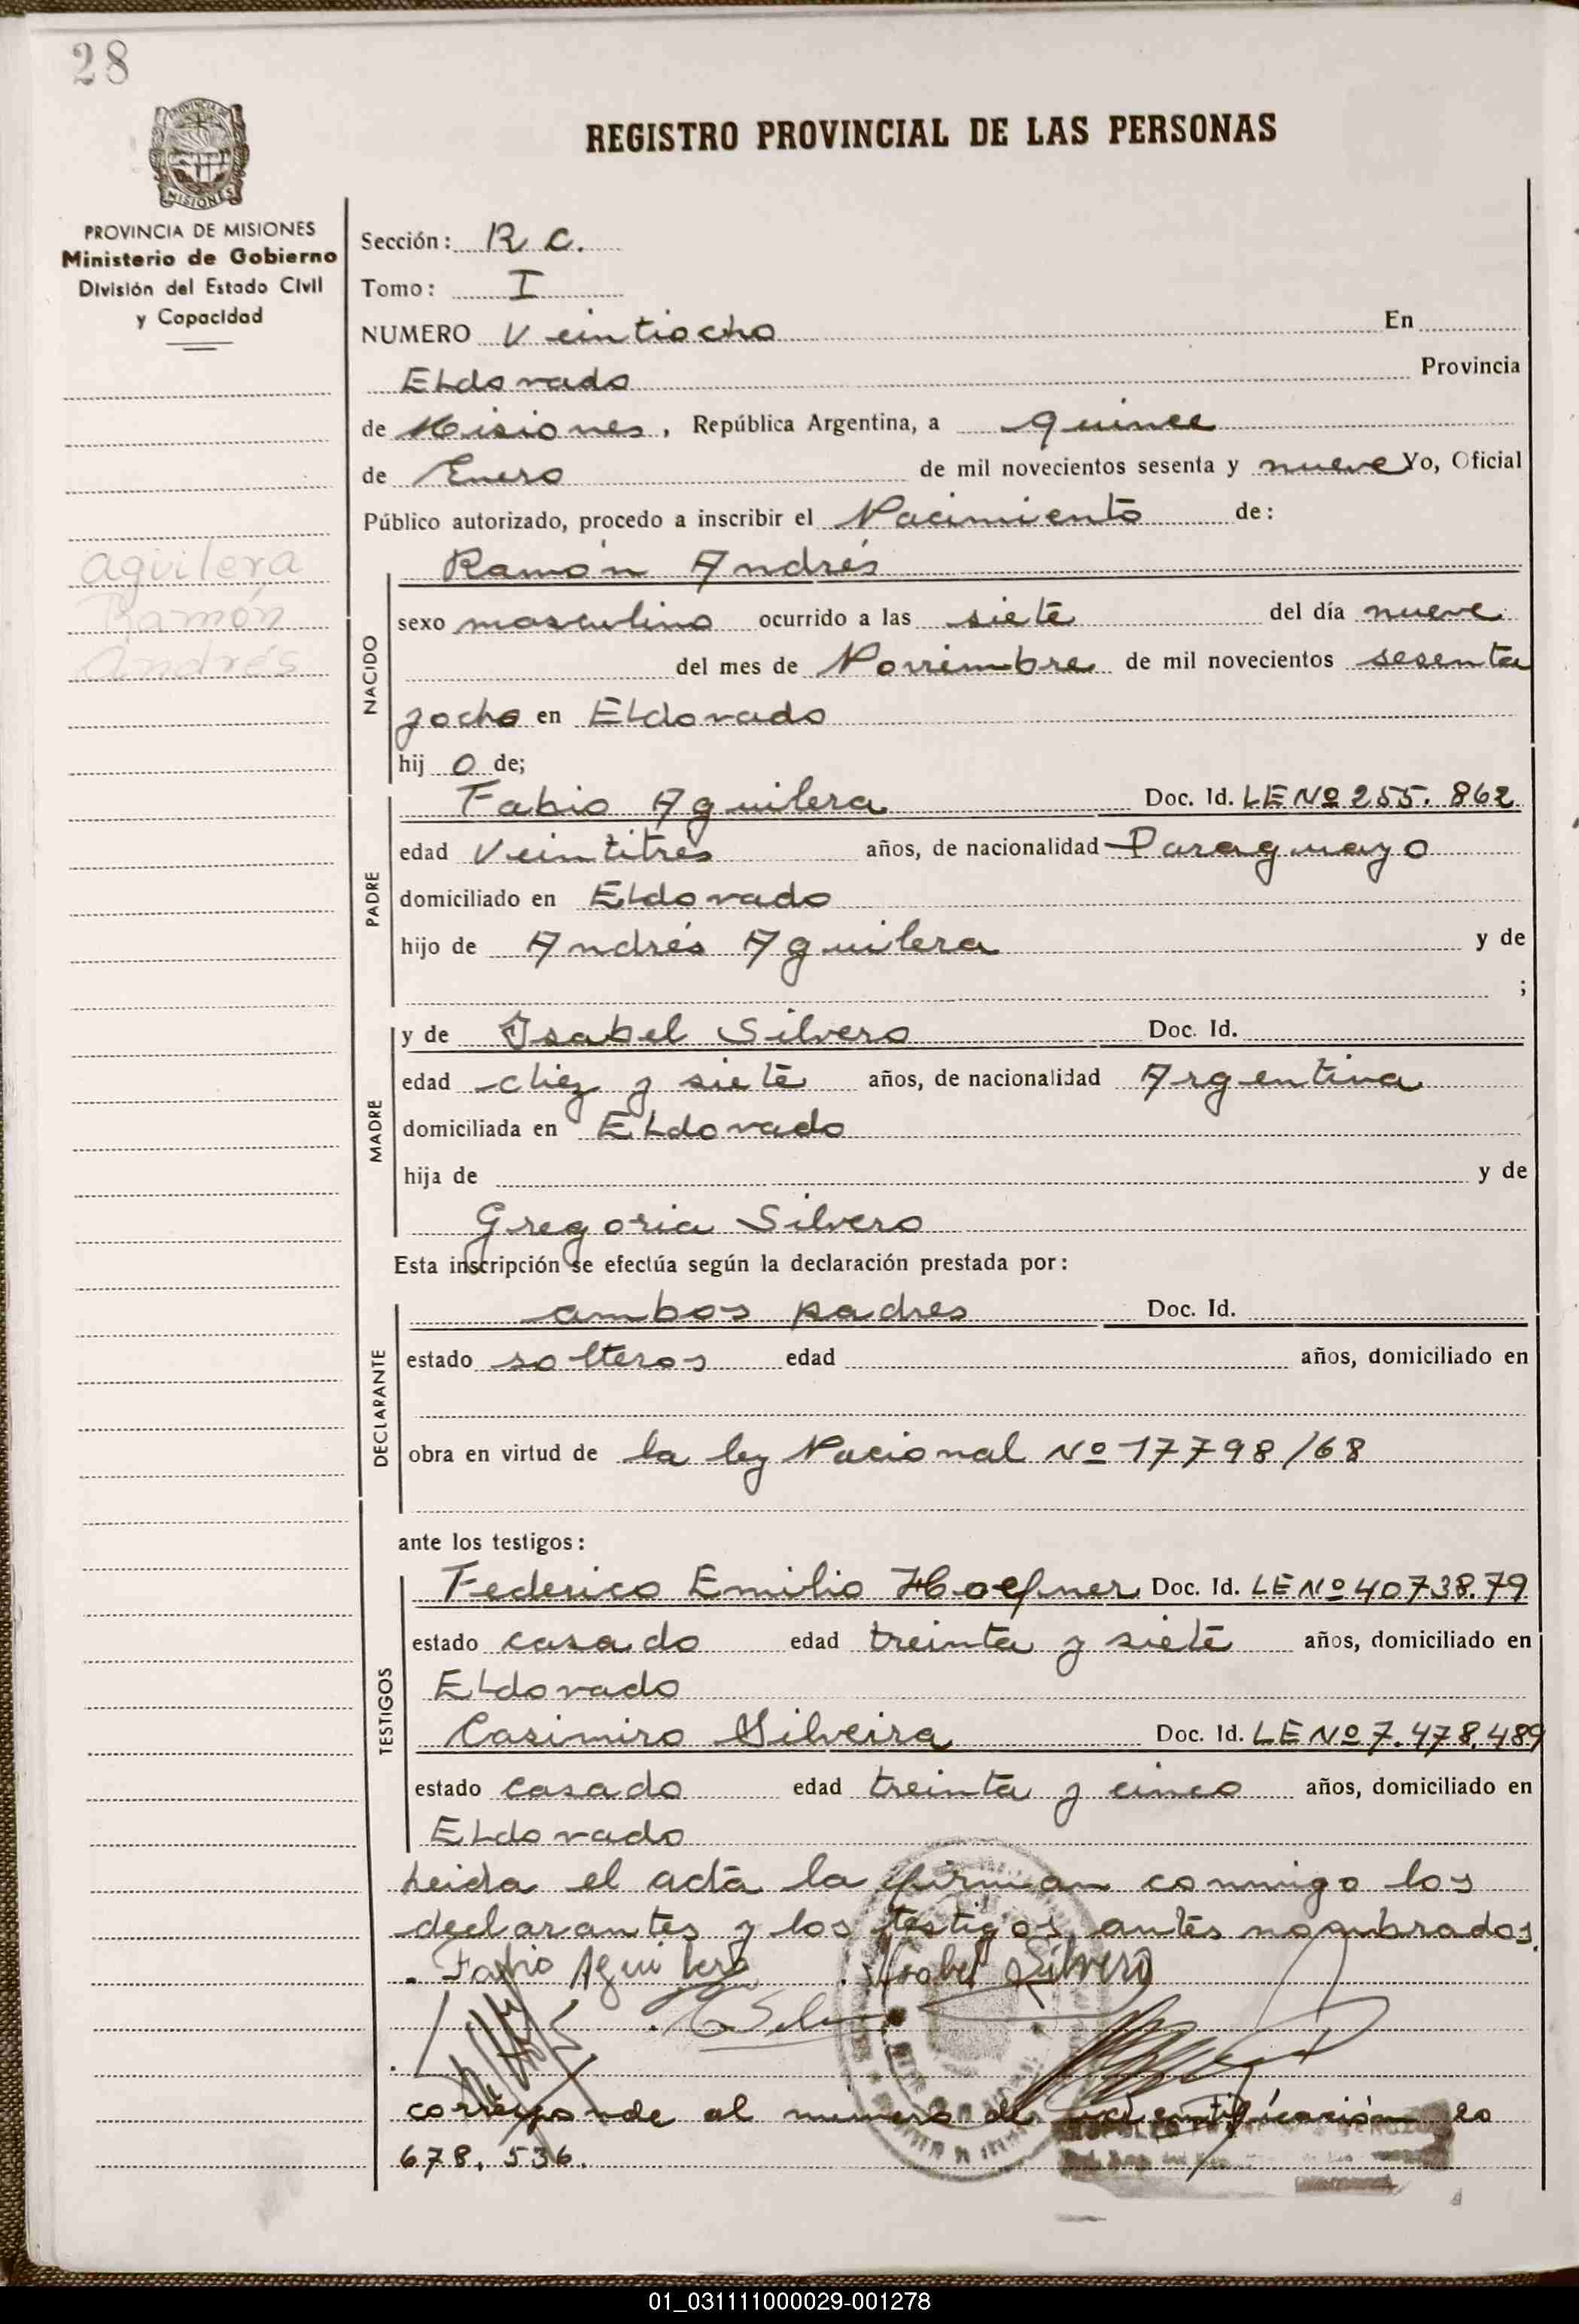 28
REGISTRO PROVINCIAL DE LAS PERSONAS
MISIONES
PROVINCIA DE MISIONES
Ministerio de Gobierno
División del Estado Civil
y Capacidad
Aguilera
Ramón
Andrés
Sección: R C.
Tomo: I
NUMERO Veintiocho En
ELdorado Provincia
de Misiones, República Argentina, a quince
de Enero de mil novecientos sesenta y nueve Yo, Oficial
Público autorizado, procedo a inscribir el Nacimiento de:
Ramón Andrés
NACIDO
sexo masculino ocurrido a las siete del día nueve
del mes de Noviembre de mil novecientos sesenta
y ocho en ELdorado
hij o de;
PADRE
Fabio Aguilera Doc. Id. LE Nº 255.862
edad Veintitres años, de nacionalidad Paraguayo
domiciliado en ELdorado
hijo de Andrés Aguilera y de
;
MADRE
y de Isabel Silvero Doc. Id.
edad diez y siete años, de nacionalidad Argentina
domiciliada en ELdorado
hija de y de
Gregoria Silvero
Esta inscripción se efectúa según la declaración prestada por:
DECLARANTE
ambos padres Doc. Id.
estado solteros edad años, domiciliado en
obra en virtud de la ley Nacional Nº 17798/68
ante los testigos:
TESTIGOS
Federico Emilio Hoefner Doc. Id. LE Nº 40738.79
estado casado edad treinta y siete años, domiciliado en
ELdorado
Casimiro Silveira Doc. Id. LE Nº 7.478.489
estado casado edad treinta y cinco años, domiciliado en
ELdorado
Leida el acta la firman conmigo los
declarantes y los testigos antes nombrados.
Fabio Aguilera Isabel Silvero
corresponde al numero de identificación 20
678.536.
01_031111000029-001278